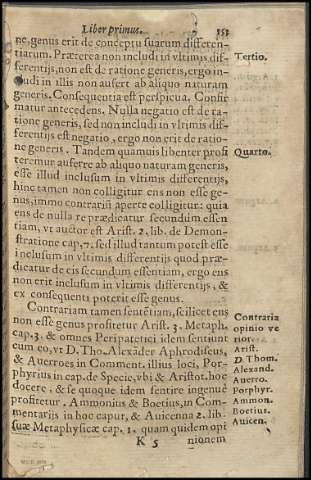 Liber primus. 153
ne, genus erit de conceptu suarum differen-
tiarum. Præterea non includi in vltimis dif-
Tertio.
ferentijs, non est de ratione generis, ergo in-
cludi in illis non aufert ab aliquo naturam
generis. Consequentia est perspicua. Confir
matur antecedens. Nulla negatio est de ra-
tione generis, sed non includi in vltimis dif-
ferentijs est negatio, ergo non erit de ratio-
ne generis. Tandem quamuis libenter profi
Quarto.
teremur auferre ab aliquo naturam generis,
esse illud inclusum in vltimis differentijs,
hinc tamen non colligitur ens non esse ge-
nus, immo contrariũ aperte colligitur: quia
ens de nulla re prædicatur secundum essen
tiam, vt auctor est Arist. 2. lib. de Demon-
stratione cap. 7. sed illud tantum potest esse
inclusum in vltimis differentijs quod præ-
dicatur de eis secundum essentiam, ergo ens
non erit inclusum in vltimis differentijs, &
ex consequenti poterit esse genus.
Contrariam tamen sententiam, scilicet ens
Contraria
non esse genus profitetur Arist. 3. Metaph.
opinio ve
cap. 3. & omnes Peripatetici idem sentiunt
rior.
cum eo, vt D. Tho. Alexãder Aphrodiseus,
Arist.
D. Thom.
& Auerroes in Comment. illius loci, Por-
Alexand.
phyrius in cap. de Specie, vbi & Aristot. hoc
Auerro.
docere, & se quoque idem sentire ingenue
Porphyr.
profitetur. Ammonius & Boetius, in Com-
Ammon.
mentarijs in hoc caput, & Auicenna 2. lib.
Boetius.
suæ Metaphysicæ cap. 1. quam quidem opi
Auicen.
K 5 nionem